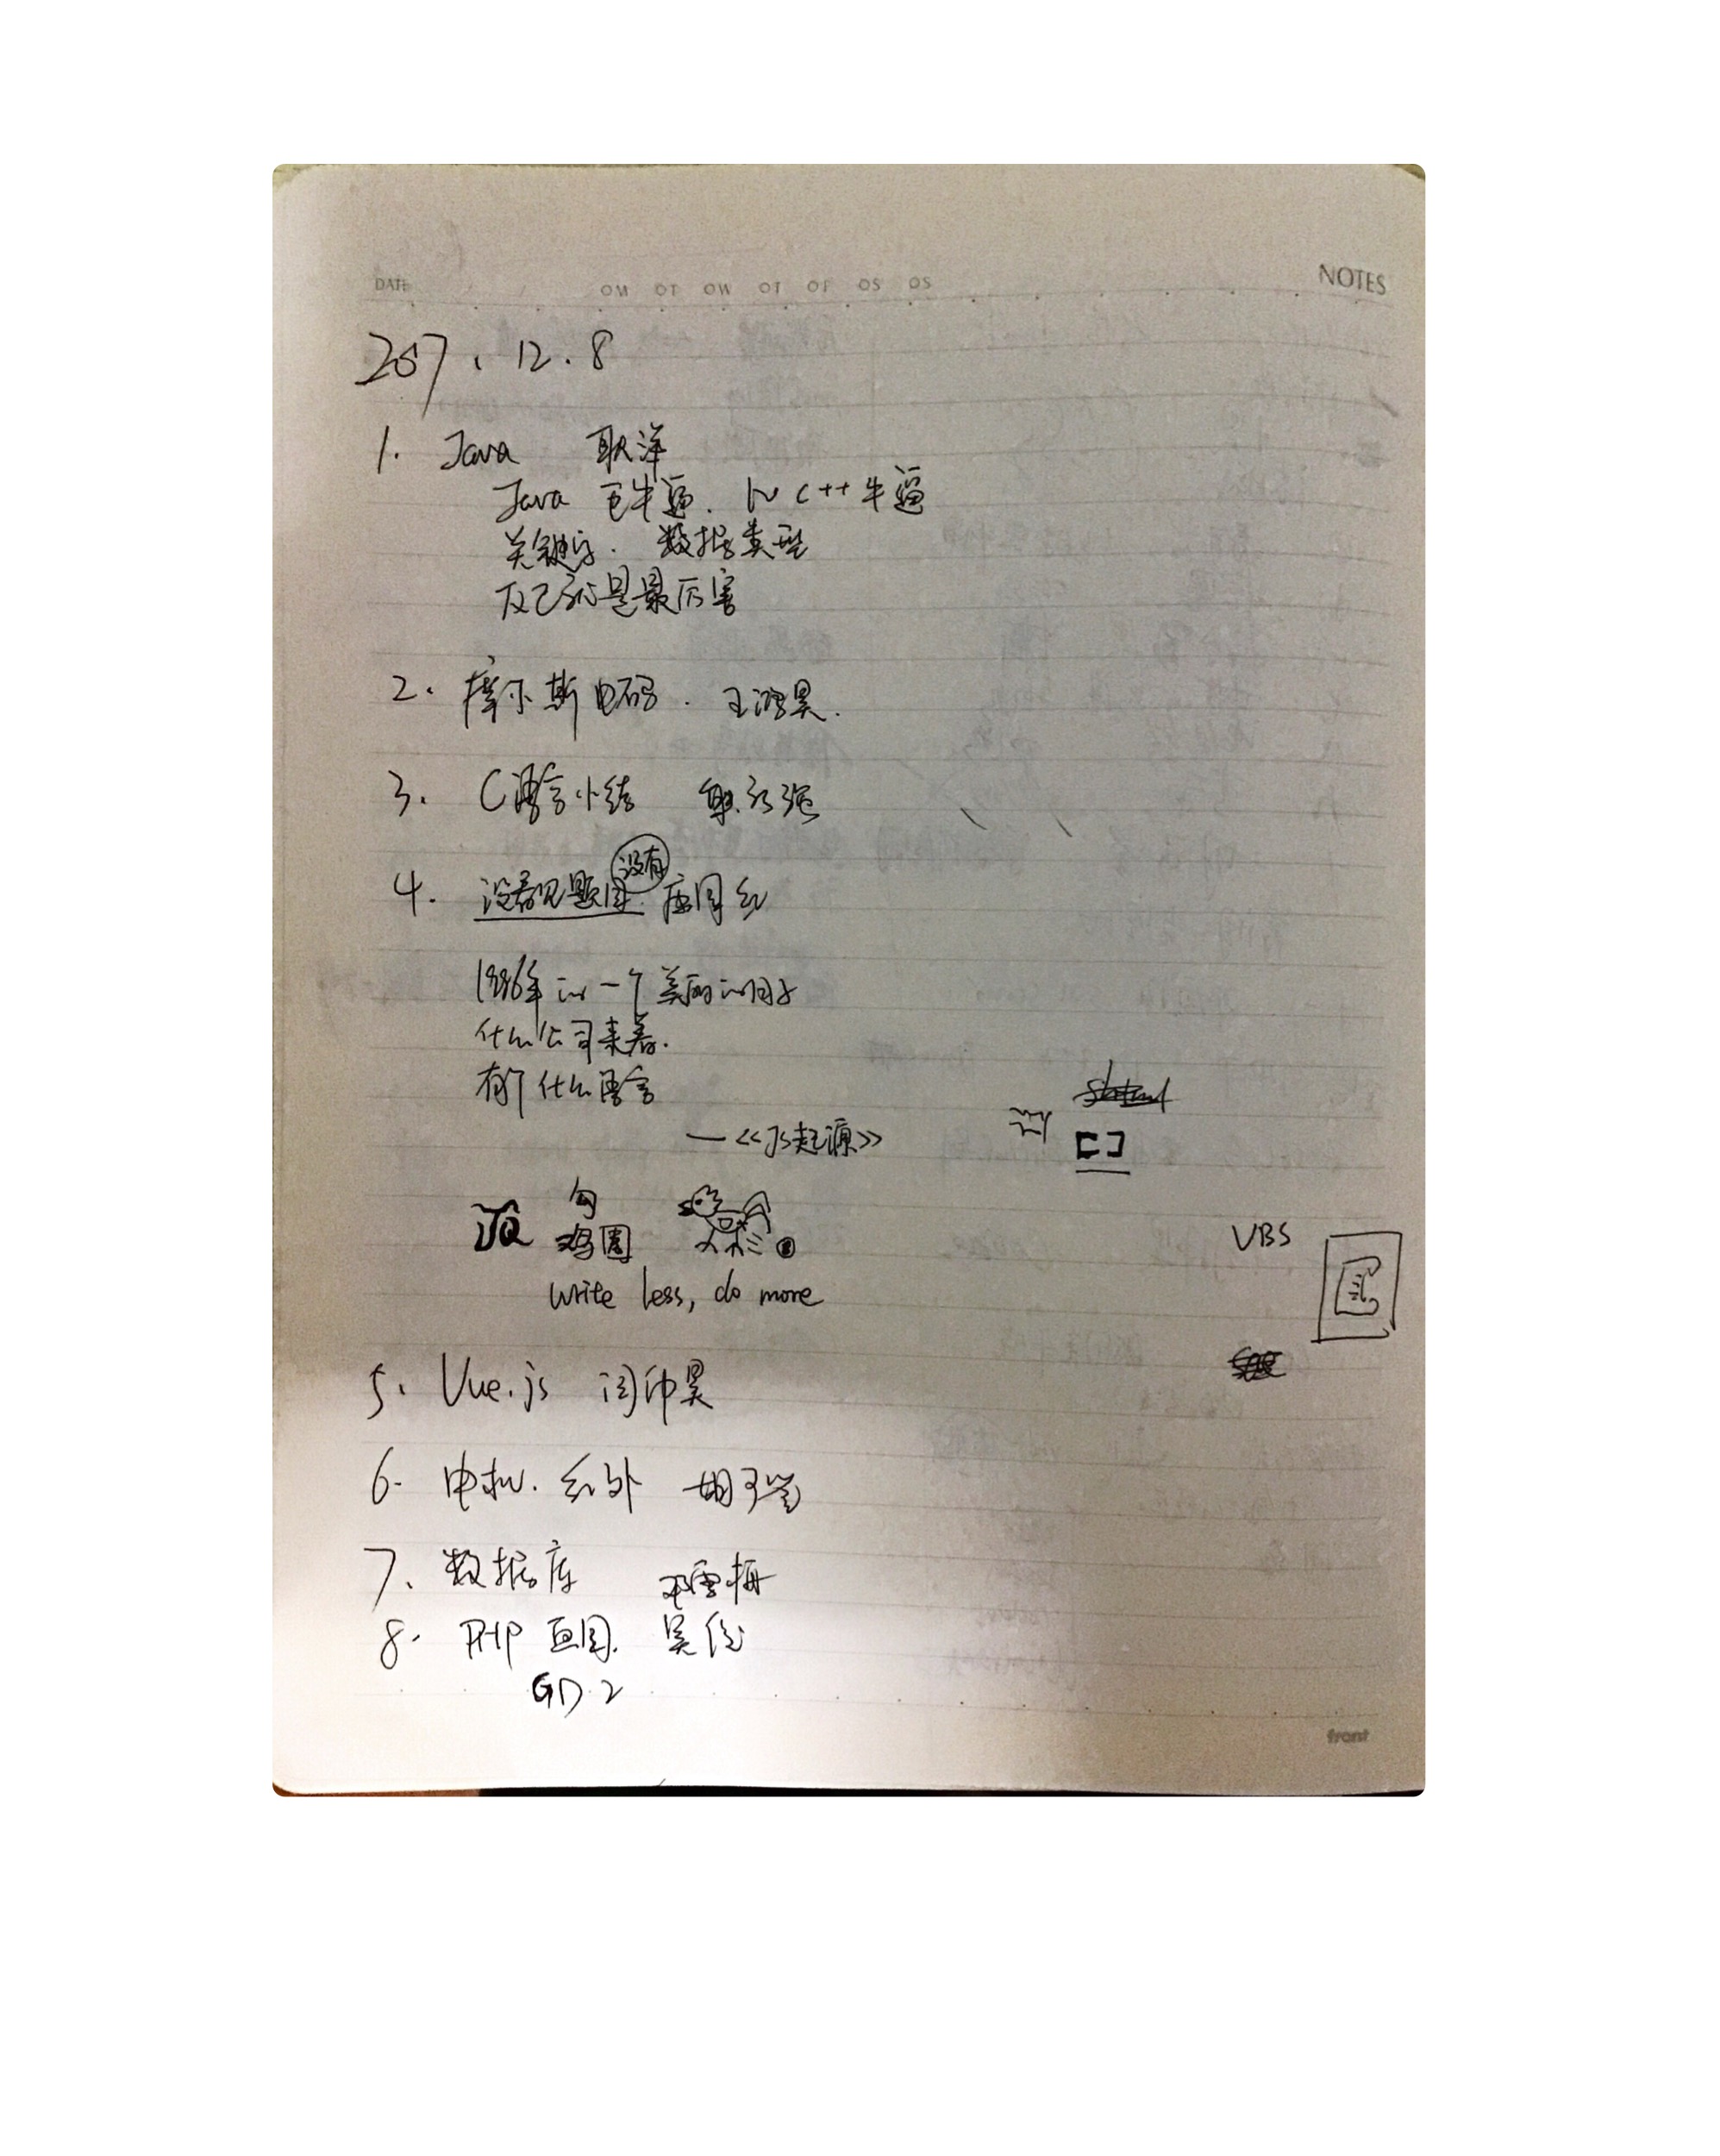 DATE OM OT OW OT OF OS OS NOTES
2017.12.8
1. Java 耿洋
Java 巨牛逼. 比C++牛逼
关键字. 数据类型
反正就是最厉害
2. 摩尔斯电码. 王鸿昊.
3. C语言小结 单永强
没有
4. 没看见题目. 庞国红
1996年的一个美丽的日子
什么公司来着.
有个什么语言
—《Js起源》
JQ 勾
鸡圈
write less, do more
VBS
5. Vue.js 闫帅昊
6. 电机. 红外
7. 数据库 雪梅
8. PHP 画图. 吴
GD 2
front